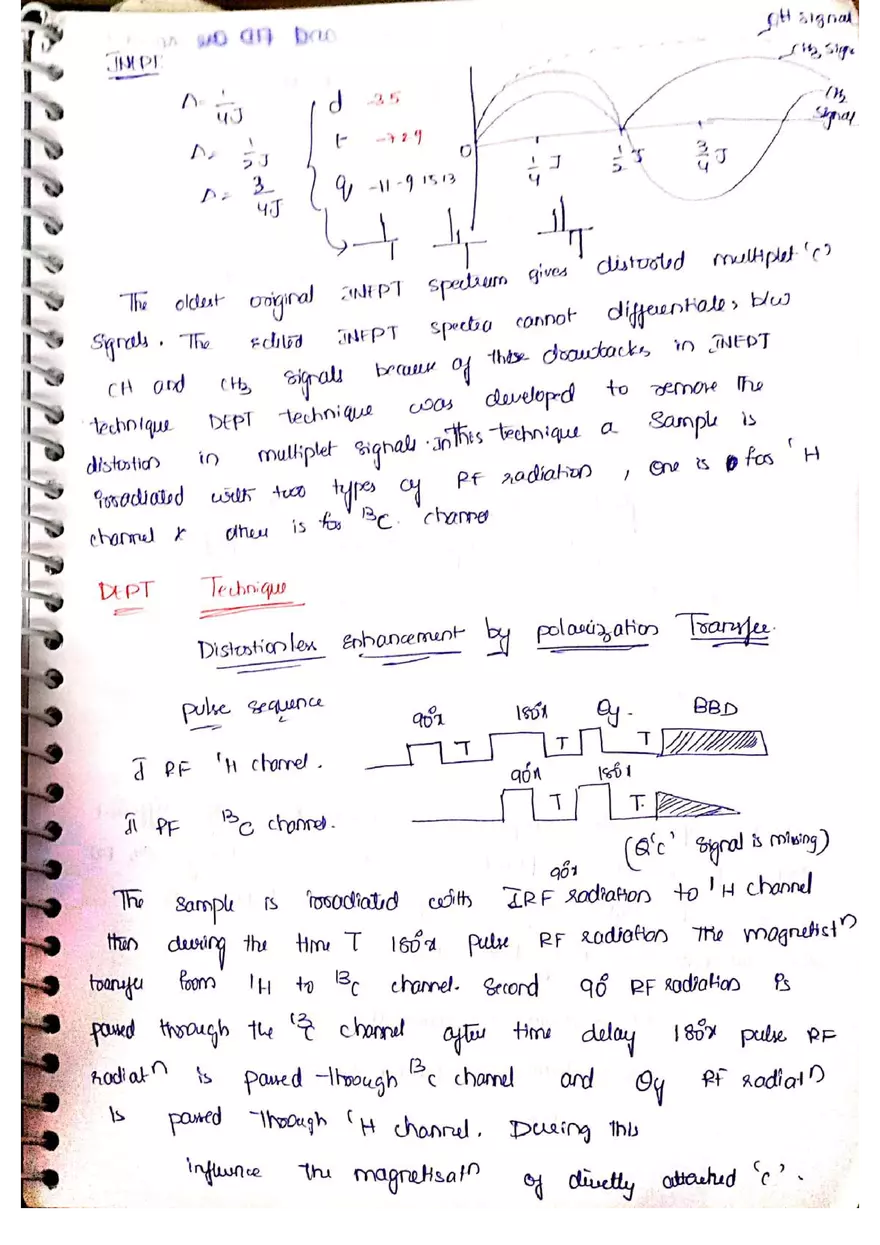 INEPT
CH signal
CH₂ sign
CH₃ signal
Δ= 1/4J
Δ= 1/2J
Δ= 3/4J
d -35
t -729
q -11-9 15 13
0
1/4 J
1/2 J
3/4 J
The oldest original INEPT spectrum gives distorted multiplet 'C'
signals. The edited INEPT spectra cannot differentiate, b/w
CH and CH₃ signals because of these drawbacks in INEPT
technique DEPT technique was developed to remove the
distortion in multiplet signals. In this technique a sample is
irradiated with two types of RF radiation, one is for ¹H
channel & other is for ¹³C channel
DEPT Technique
Distortionless Enhancement by polarization Transfer.
pulse sequence
90°x 180°x θy. BBD
I RF ¹H channel.
T T T
90°x 180°x
II RF ¹³C channel.
T T.
(Q 'C' signal is missing)
90°x
The sample is irradiated with I RF radiation to ¹H channel
then during the time T 180°x pulse RF radiation The magnetistⁿ
transfer from ¹H to ¹³C channel. Second 90° RF radiation is
passed through the ¹³C channel after time delay 180°x pulse RF
radiatⁿ is passed through ¹³C channel and θy RF radiatⁿ
is passed through ¹H channel. During this
influence the magnetisatⁿ of directly attached 'C'.